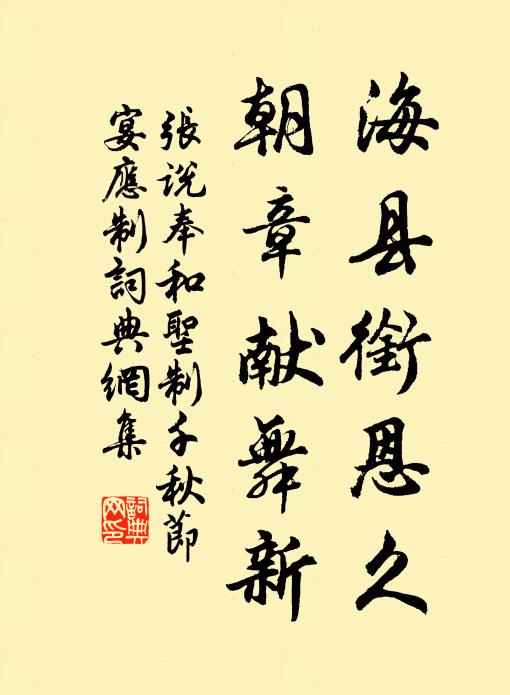 海县銜恩久
朝章献舞新
張説奉和聖制千秋節
宴應制詞典網集
詞典
网印